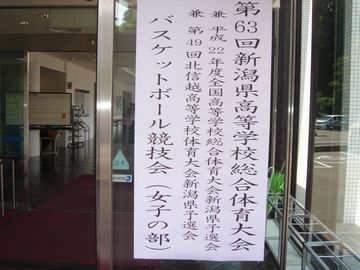 第63回新潟県高等学校総合体育大会
兼 平成22年度全国高等学校総合体育大会新潟県予選会
兼 第49回北信越高等学校体育大会新潟県予選会
バスケットボール競技会（女子の部）